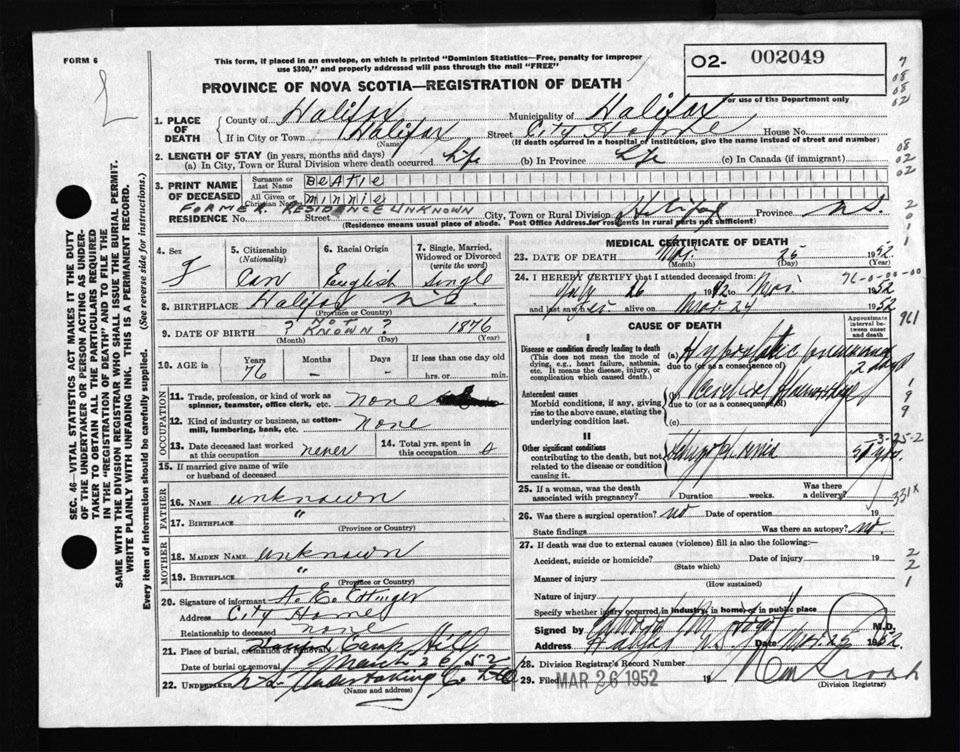 FORM 6
This form, if placed in an envelope, on which is printed "Dominion Statistics—Free, penalty for improper
use $300," and properly addressed will pass through the mail "FREE"
O2- 002049
PROVINCE OF NOVA SCOTIA—REGISTRATION OF DEATH
For use of the Department only
1. PLACE OF DEATH
County of Halifax Municipality of Halifax
If in City or Town Halifax Street City Home House No.
(Name) (If death occurred in a hospital of institution, give the name instead of street and number)
2. LENGTH OF STAY (in years, months and days)
(a) In City, Town or Rural Division where death occurred Life (b) In Province Life (c) In Canada (if immigrant)
3. PRINT NAME OF DECEASED
Surname or Last Name BEATIE
All Given or Christian Names MINNIE
FORMER RESIDENCE UNKNOWN
RESIDENCE No. Street City, Town or Rural Division Halifax Province NS
(Residence means usual place of abode. Post Office Address for residents in rural parts not sufficient)
4. Sex F
5. Citizenship (Nationality) Can
6. Racial Origin English
7. Single, Married, Widowed or Divorced (write the word) Single
8. BIRTHPLACE Halifax N.S.
(Province or Country)
9. DATE OF BIRTH ? NOT KNOWN ? 1876
(Month) (Day) (Year)
10. AGE in Years 76 Months - Days - If less than one day old hrs. or min.
OCCUPATION
11. Trade, profession, or kind of work as spinner, teamster, office clerk, etc. none
12. Kind of industry or business, as cotton-mill, lumbering, bank, etc. None
13. Date deceased last worked at this occupation never
14. Total yrs. spent in this occupation 0
15. If married give name of wife or husband of deceased
FATHER
16. NAME unknown
17. BIRTHPLACE "
(Province or Country)
MOTHER
18. MAIDEN NAME unknown
19. BIRTHPLACE "
(Province or Country)
20. Signature of informant A. E. Ettinger
Address City Home
Relationship to deceased none
21. Place of burial, cremation or removal Camp Hill
Date of burial or removal March 26 52
22. Undertaker N.S. Undertaking Co. Ltd
(Name and address)
MEDICAL CERTIFICATE OF DEATH
23. DATE OF DEATH Mar. 25 1952
(Month) (Day) (Year)
24. I HEREBY CERTIFY that I attended deceased from
26 to Mar. 1952
and last saw her alive on Mar. 24 1952
CAUSE OF DEATH
Approximate interval between onset and death
I
Disease or condition directly leading to death
(This does not mean the mode of dying, e.g., heart failure, asthenia, etc. It means the disease, injury, or complication which caused death.)
(a) Hypostatic pneumonia 2 days
due to (or as a consequence of)
Antecedent causes
Morbid conditions, if any, giving rise to the above cause, stating the underlying condition last.
(b) Cerebral Hemorrhage
due to (or as a consequence of)
(c)
II
Other significant conditions
contributing to the death, but not related to the disease or condition causing it.
Schizophrenia
25. If a woman, was the death associated with pregnancy? Duration weeks. Was there a delivery?
26. Was there a surgical operation? no Date of operation 19
State findings Was there an autopsy? no.
27. If death was due to external causes (violence) fill in also the following:
Accident, suicide or homicide? Date of injury 19
(State which)
Manner of injury
(How sustained)
Nature of injury
Specify whether injury occurred in industry, in home, or in public place
Signed by M.D.
Address Halifax N.S. Date Mar. 25 1952
28. Division Registrar's Record Number
29. Filed MAR 26 1952 19
(Division Registrar)
SEC. 46—VITAL STATISTICS ACT MAKES IT THE DUTY
OF THE UNDERTAKER OR PERSON ACTING AS UNDER-
TAKER TO OBTAIN ALL THE PARTICULARS REQUIRED
IN THE "REGISTRATION OF DEATH" AND TO FILE THE
SAME WITH THE DIVISION REGISTRAR WHO SHALL ISSUE THE BURIAL PERMIT.
WRITE PLAINLY WITH UNFADING INK. THIS IS A PERMANENT RECORD.
Every item of information should be carefully supplied. (See reverse side for instructions.)
7
08
08
02
08
02
02
2
0
1
1
76-0-00-00
961
9
9
3-25-2
331x
2
2
1